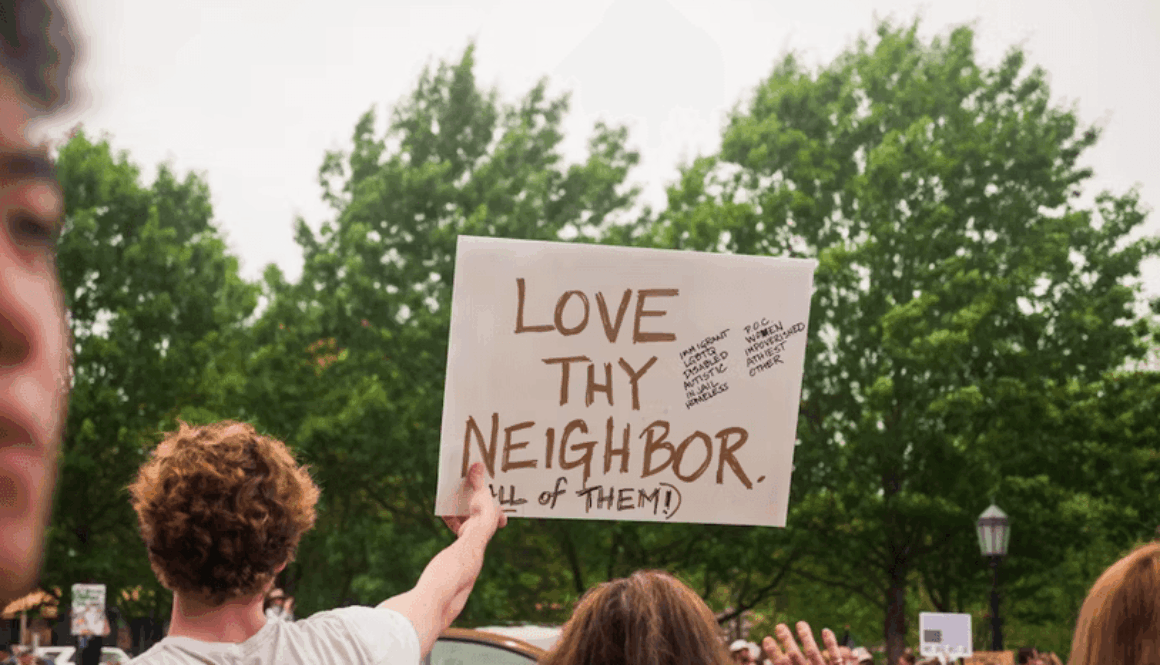 LOVE
THY
NEIGHBOR.
ALL of THEM!)
IMMIGRANT
LGBTQ
DISABLED
AUTISTIC
IN JAIL
HOMELESS
P.O.C.
WOMEN
IMPOVERISHED
ATHIEST
OTHER